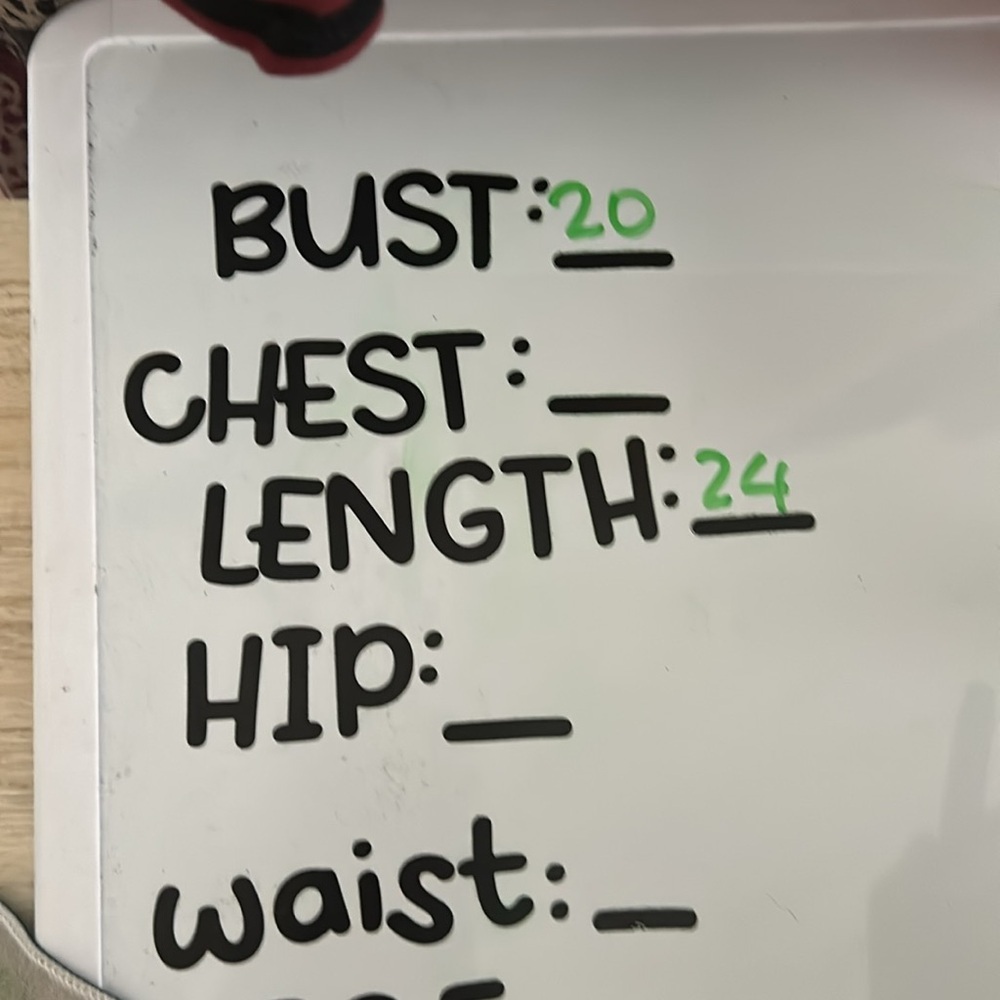 BUST: 20
CHEST: __
LENGTH: 24
HIP: __
waist: __